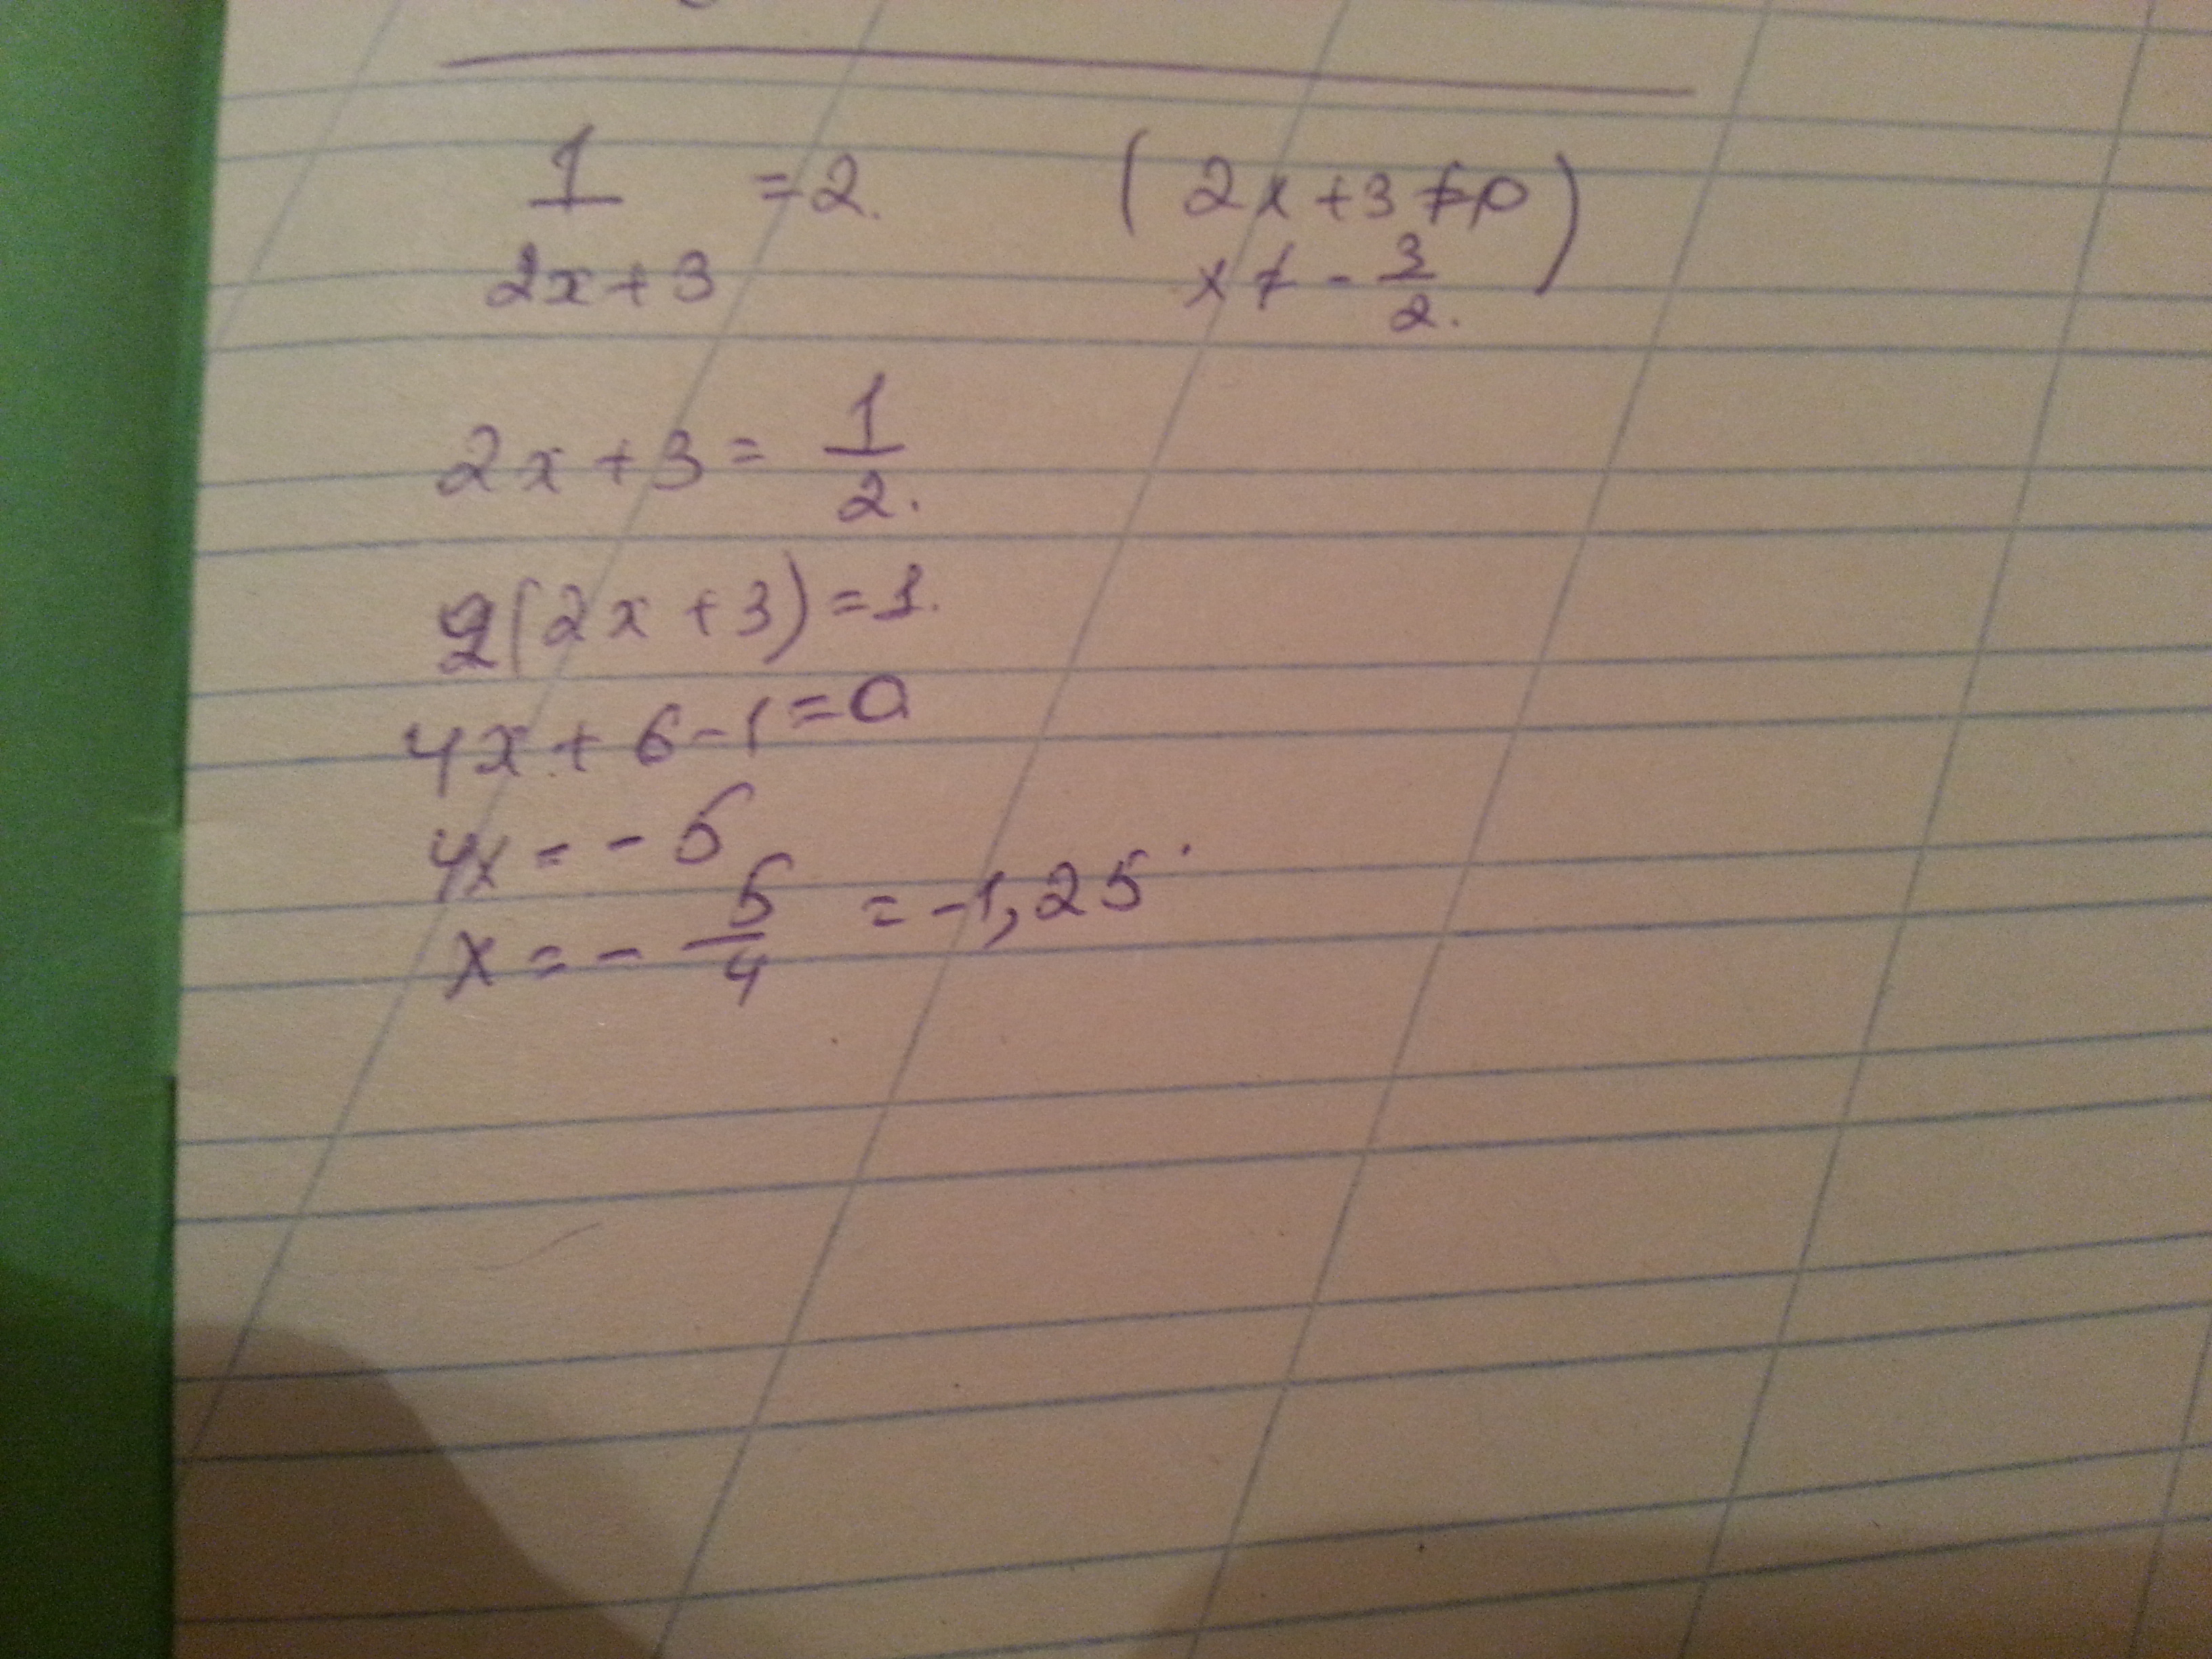 1/(2x+3) = 2. (2x+3≠0
x ≠ -3/2.)
2x+3 = 1/2.
2(2x+3)=1.
4x+6-1=0
4x = -5
x = -5/4 = -1,25